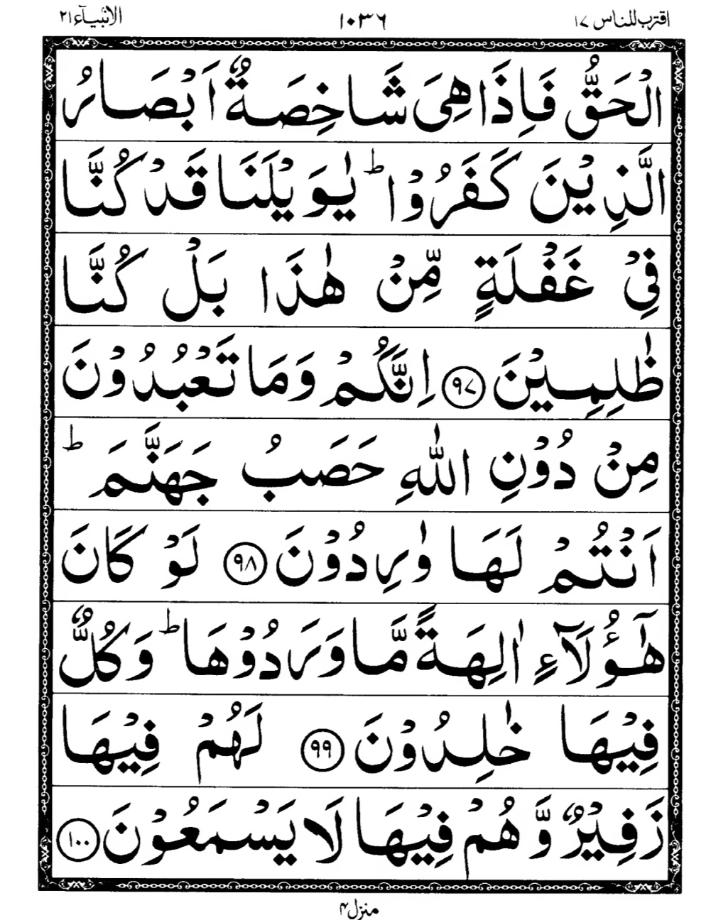 اقترب للناس ١٧ ١٠٣٦ الانبیآء ٢١
الْحَقُّ فَاِذَا هِیَ شَاخِصَةٌ اَبْصَارُ
الَّذِیْنَ كَفَرُوْا ؕ یٰوَیْلَنَا قَدْ كُنَّا
فِیْ غَفْلَةٍ مِّنْ هٰذَا بَلْ كُنَّا
ظٰلِمِیْنَ ﴿٩٧﴾ اِنَّكُمْ وَمَا تَعْبُدُوْنَ
مِنْ دُوْنِ اللّٰهِ حَصَبُ جَهَنَّمَ ؕ
اَنْتُمْ لَهَا وٰرِدُوْنَ ﴿٩٨﴾ لَوْ كَانَ
هٰۤؤُلَآءِ اٰلِهَةً مَّا وَرَدُوْهَا ؕ وَكُلٌّ
فِیْهَا خٰلِدُوْنَ ﴿٩٩﴾ لَهُمْ فِیْهَا
زَفِیْرٌ وَّهُمْ فِیْهَا لَا یَسْمَعُوْنَ ﴿١٠٠﴾
منزل ۴